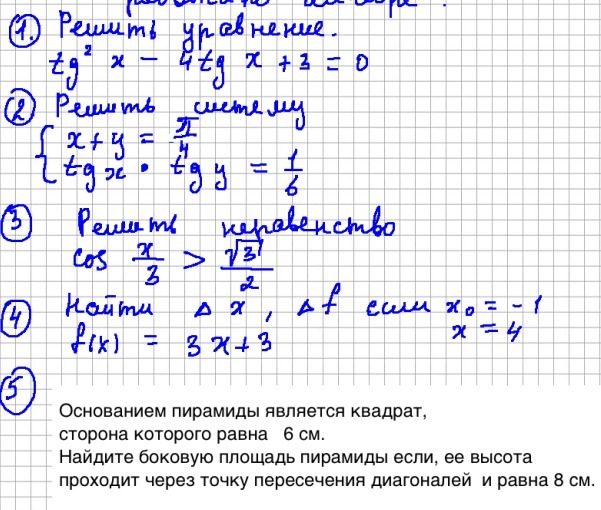 1. Решить уравнение.
tg² x - 4tg x + 3 = 0
2 Решить систему
{ x + y = π/4
tg x • tg y = 1/6
3 Решить неравенство
cos x/3 > √3/2
4 Найти Δ x, Δ f если x₀ = -1
f(x) = 3x+3 x = 4
5
Основанием пирамиды является квадрат,
сторона которого равна 6 см.
Найдите боковую площадь пирамиды если, ее высота
проходит через точку пересечения диагоналей и равна 8 см.